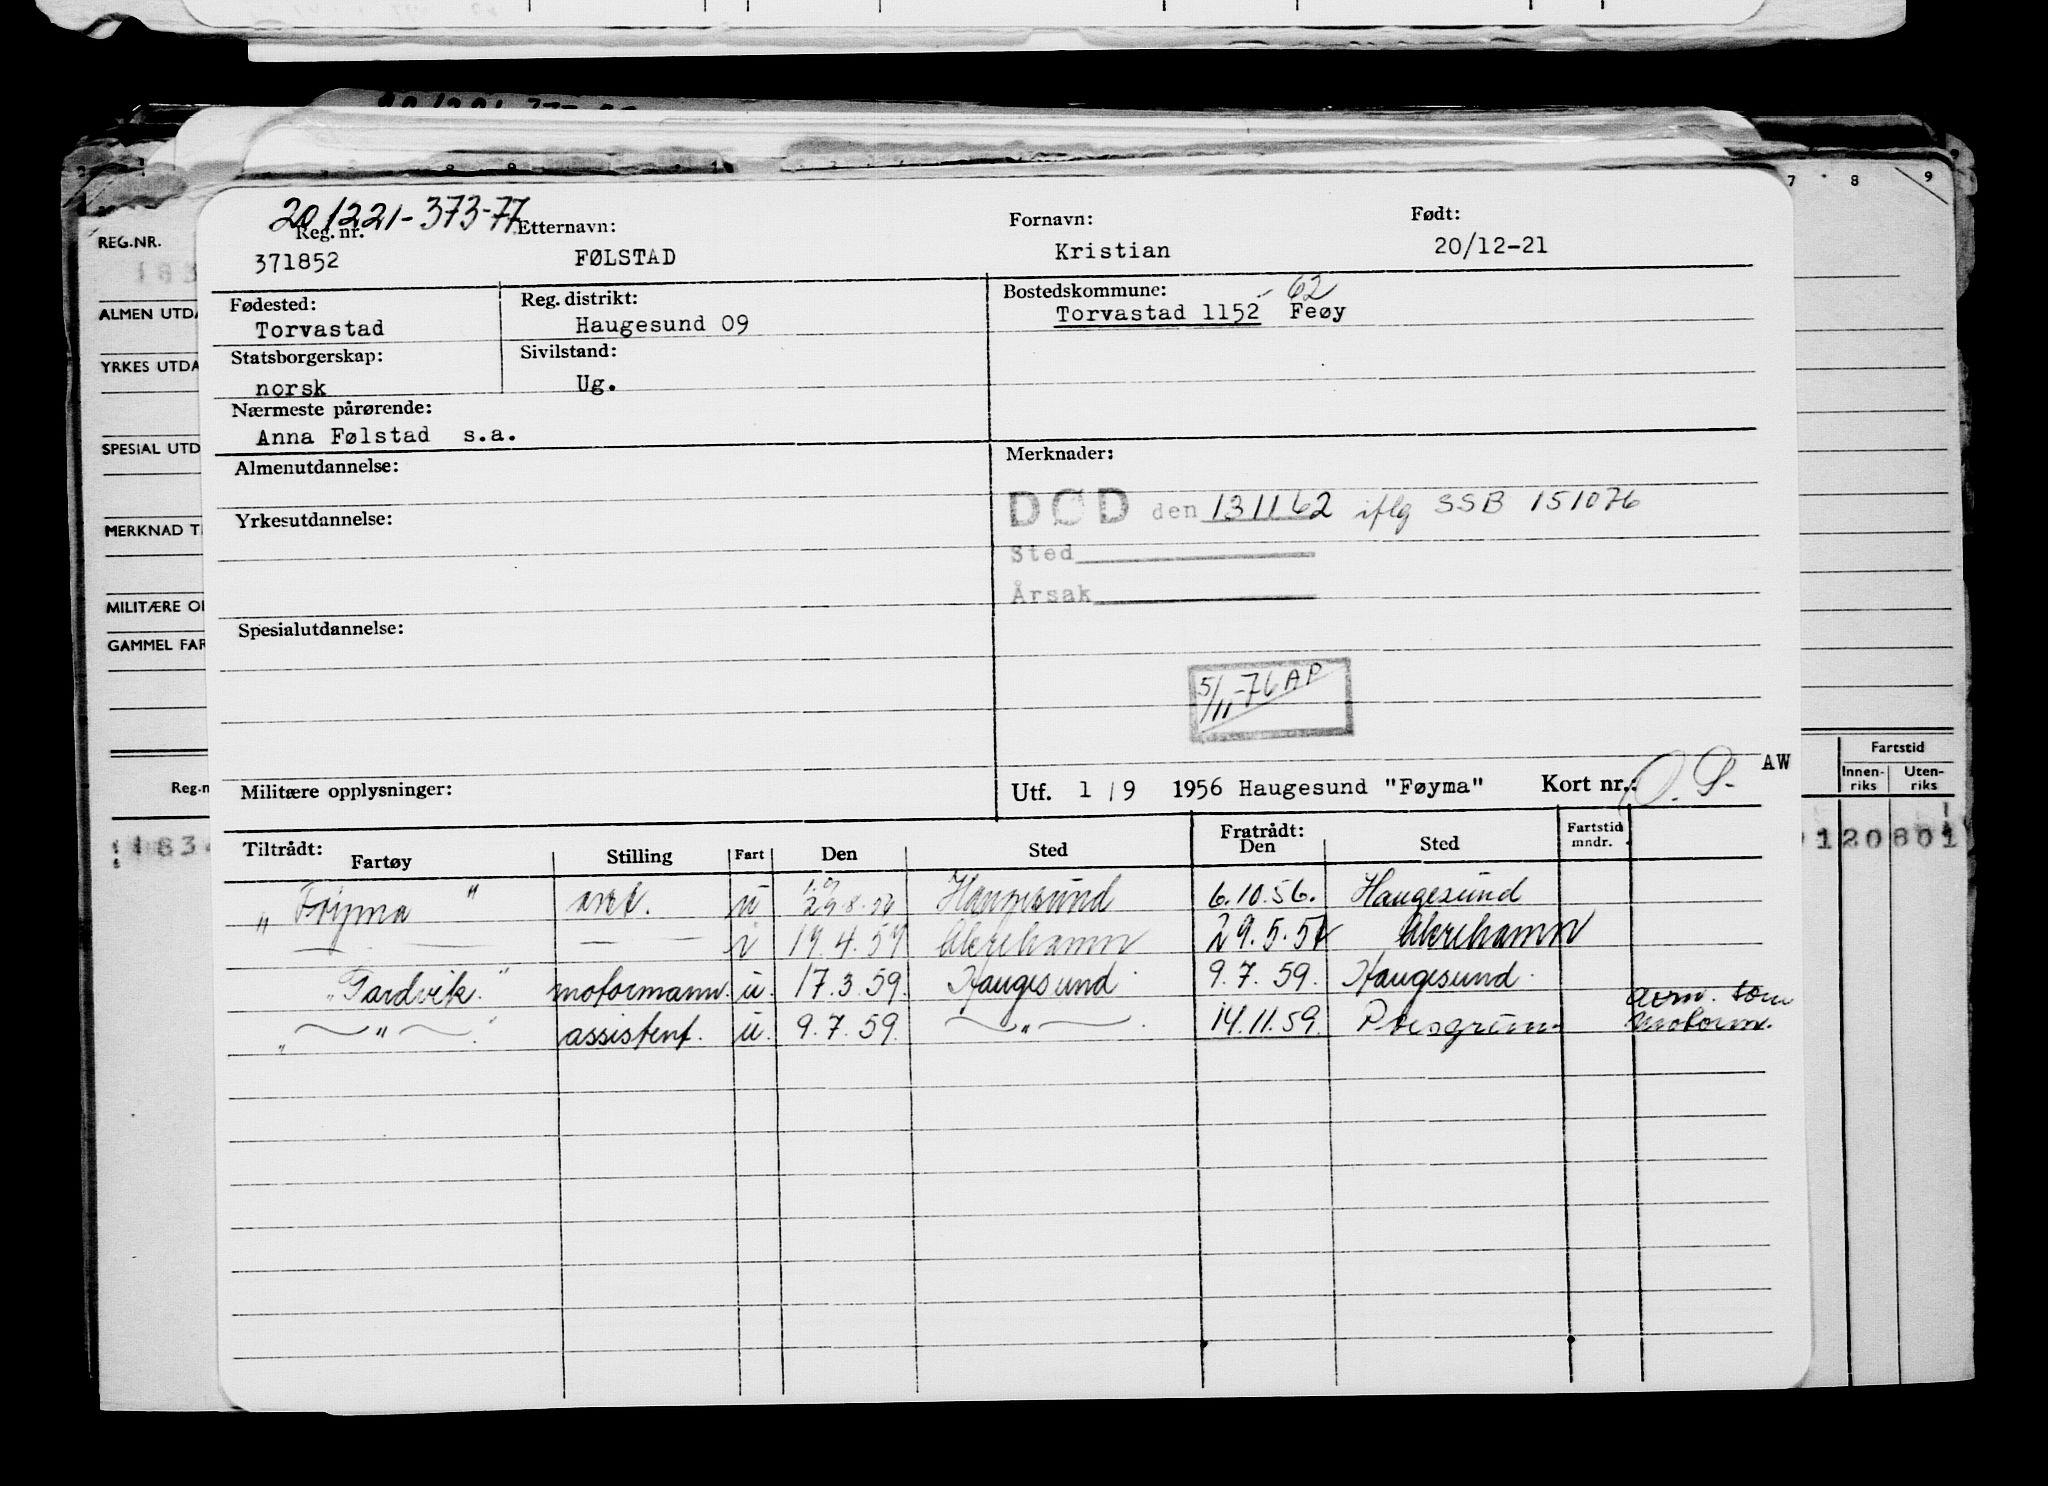 201221-373-77
Reg. nr. Etternavn: Fornavn: Født:
371852 FØLSTAD Kristian 20/12-21
Fødested: Reg. distrikt: Bostedskommune: 62
Torvastad Haugesund 09 Torvastad 1152 Feøy
Statsborgerskap: Sivilstand:
norsk Ug.
Nærmeste pårørende:
Anna Følstad s.a.
Almenutdannelse: Merknader:
DØD den 131162 iflg SSB 151076
Yrkesutdannelse:
Sted
Årsak
Spesialutdannelse:
5/11-76 AP
AW
Militære opplysninger: Utf. 1/9 1956 Haugesund "Føyma" Kort nr.:
Tiltrådt: Fartøy Stilling Fart Den Sted Fratrådt: Den Sted Fartstid mndr.
"Føyma" u Haugesund 6.10.56. Haugesund
i 19.4.57 Åkrehamn 29.5.57 Åkrehamn
"Gardvik" motormann. u. 17.3.59. Haugesund 9.7.59. Haugesund.
" " assistent. u. 9.7.59. " 14.11.59. Porsgrunn. som motorm.
REG.NR.
ALMEN UTDA
YRKES UTDA
SPESIAL UTD
MERKNAD T
MILITÆRE O
GAMMEL FAR
Reg.n
7 8 9
Fartstid
Innen-riks Uten-riks
120801